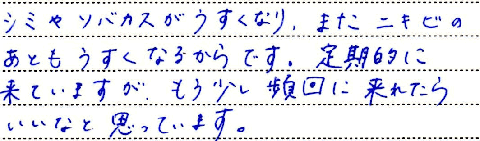 シミやソバカスがうすくなり、またニキビの
あともうすくなるからです。定期的に
来ていますが、もう少し頻回に来れたら
いいなと思っています。